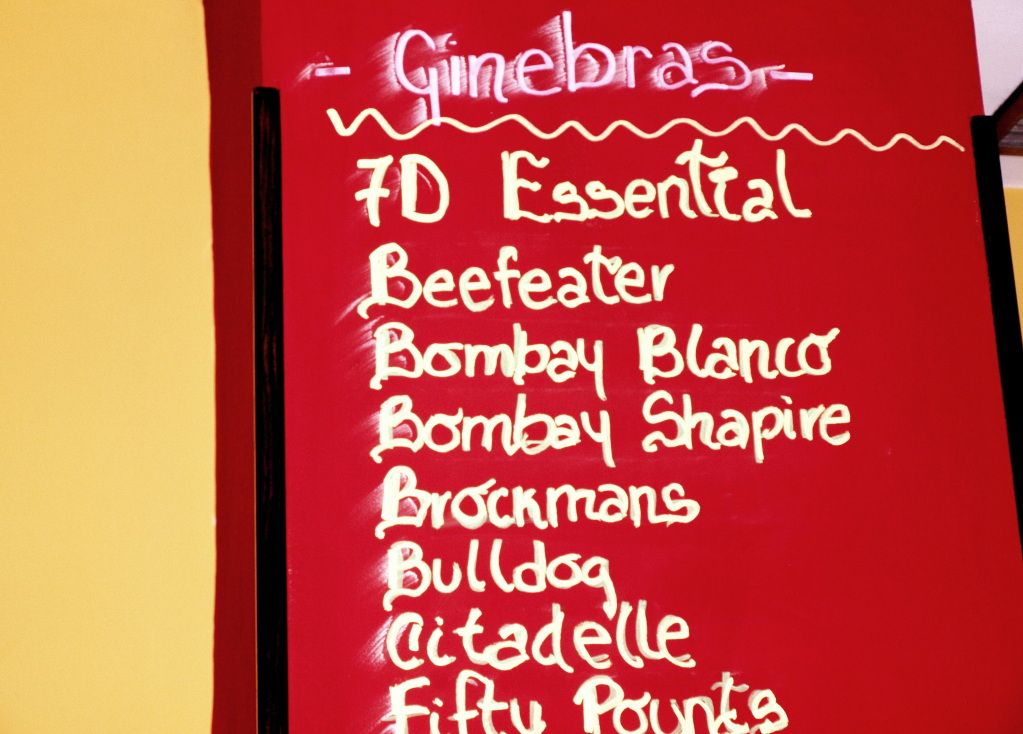 - Ginebras -
7D Essential
Beefeater
Bombay Blanco
Bombay Shapire
Brockmans
Bulldog
Citadelle
Fifty Pounts